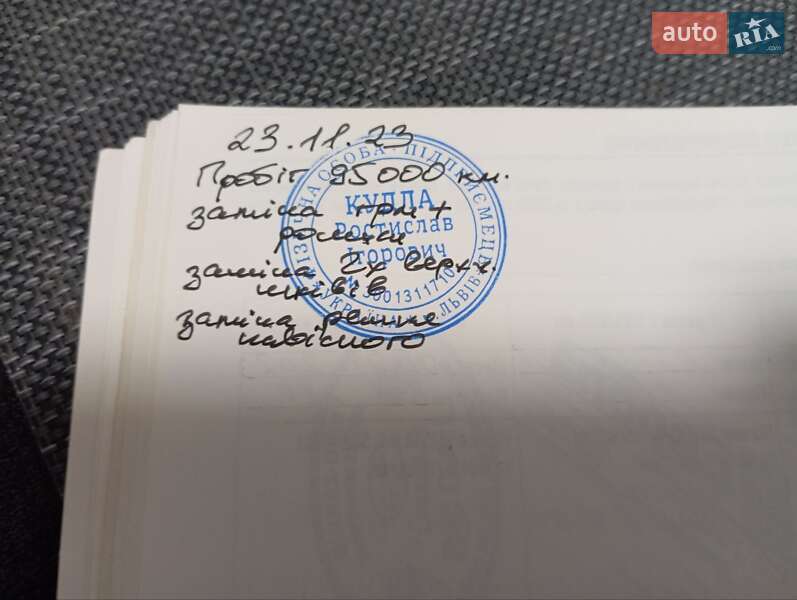 auto RIA.com
23.11.23
Пробіг 95000 км.
заміна грм +
ролики
заміна 2х верхн.
шківів
заміна ремня
навісного
ФІЗИЧНА ОСОБА - ПІДПРИЄМЕЦЬ
КУДЛА
Ростислав
Ігорович
УКРАЇНА ЛЬВІВ